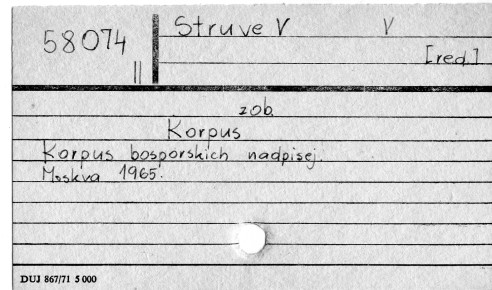 Struve V V
58074
[red.]
II
zob.
Korpus
Korpus bosporskich nadpisej.
Moskva 1965.
DUJ 867/71 5 000